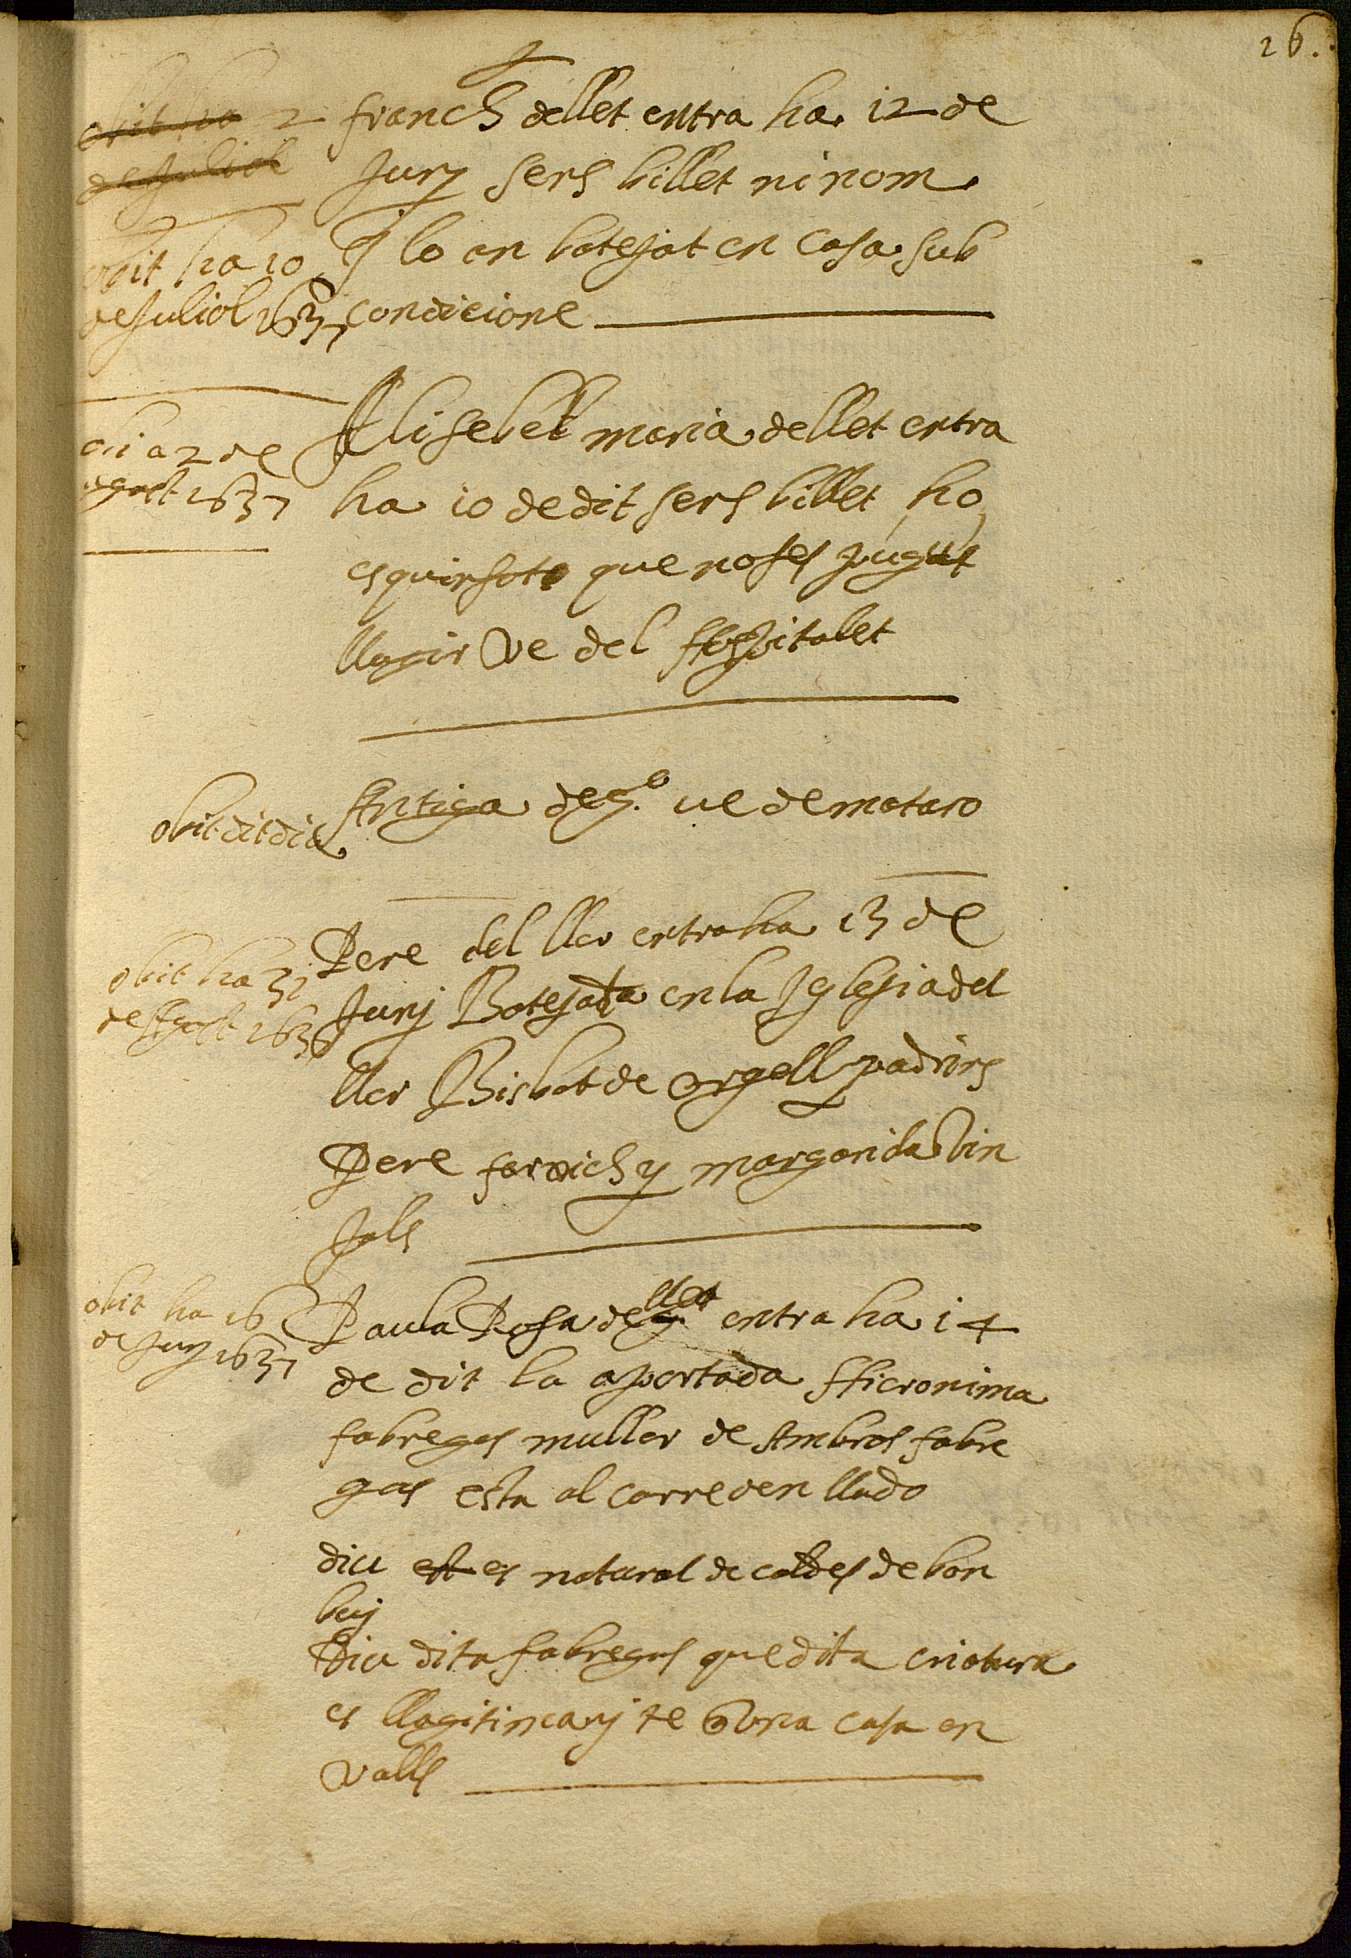 26.
obit ha 2
de Juliol
obit ha 10
de Juliol 1637
franch de llet entra ha 12 de
Juny sens billet ni nom
y lo an batejat en casa sub
condicione
obi a 2 de
agost 1637
Elisebet maria de llet entra
ha 10 de dit sens billet ho
esquinsat que no ses pugut
llagir ve del Hospitalet
obit dit dia
Antiga de g.e ve de mataro
obit ha 31
de Agost 1636
Pere del ller entra ha 13 de
Juny Batejada en la Iglesia del
ller Bisbat de orgell padrins
Pere farrich y margarida Vin
yals
obit ha 16
de Juny 1637
Paula Rosa de llet entra ha 14
de dit la aportada Hieronima
fabregas muller de Ambros fabre
gas esta al carrer den llado
diu est es natural de caldes de bon
buy
Diu dita fabregas que dita criatura
es llagitima y te una casa en
valls